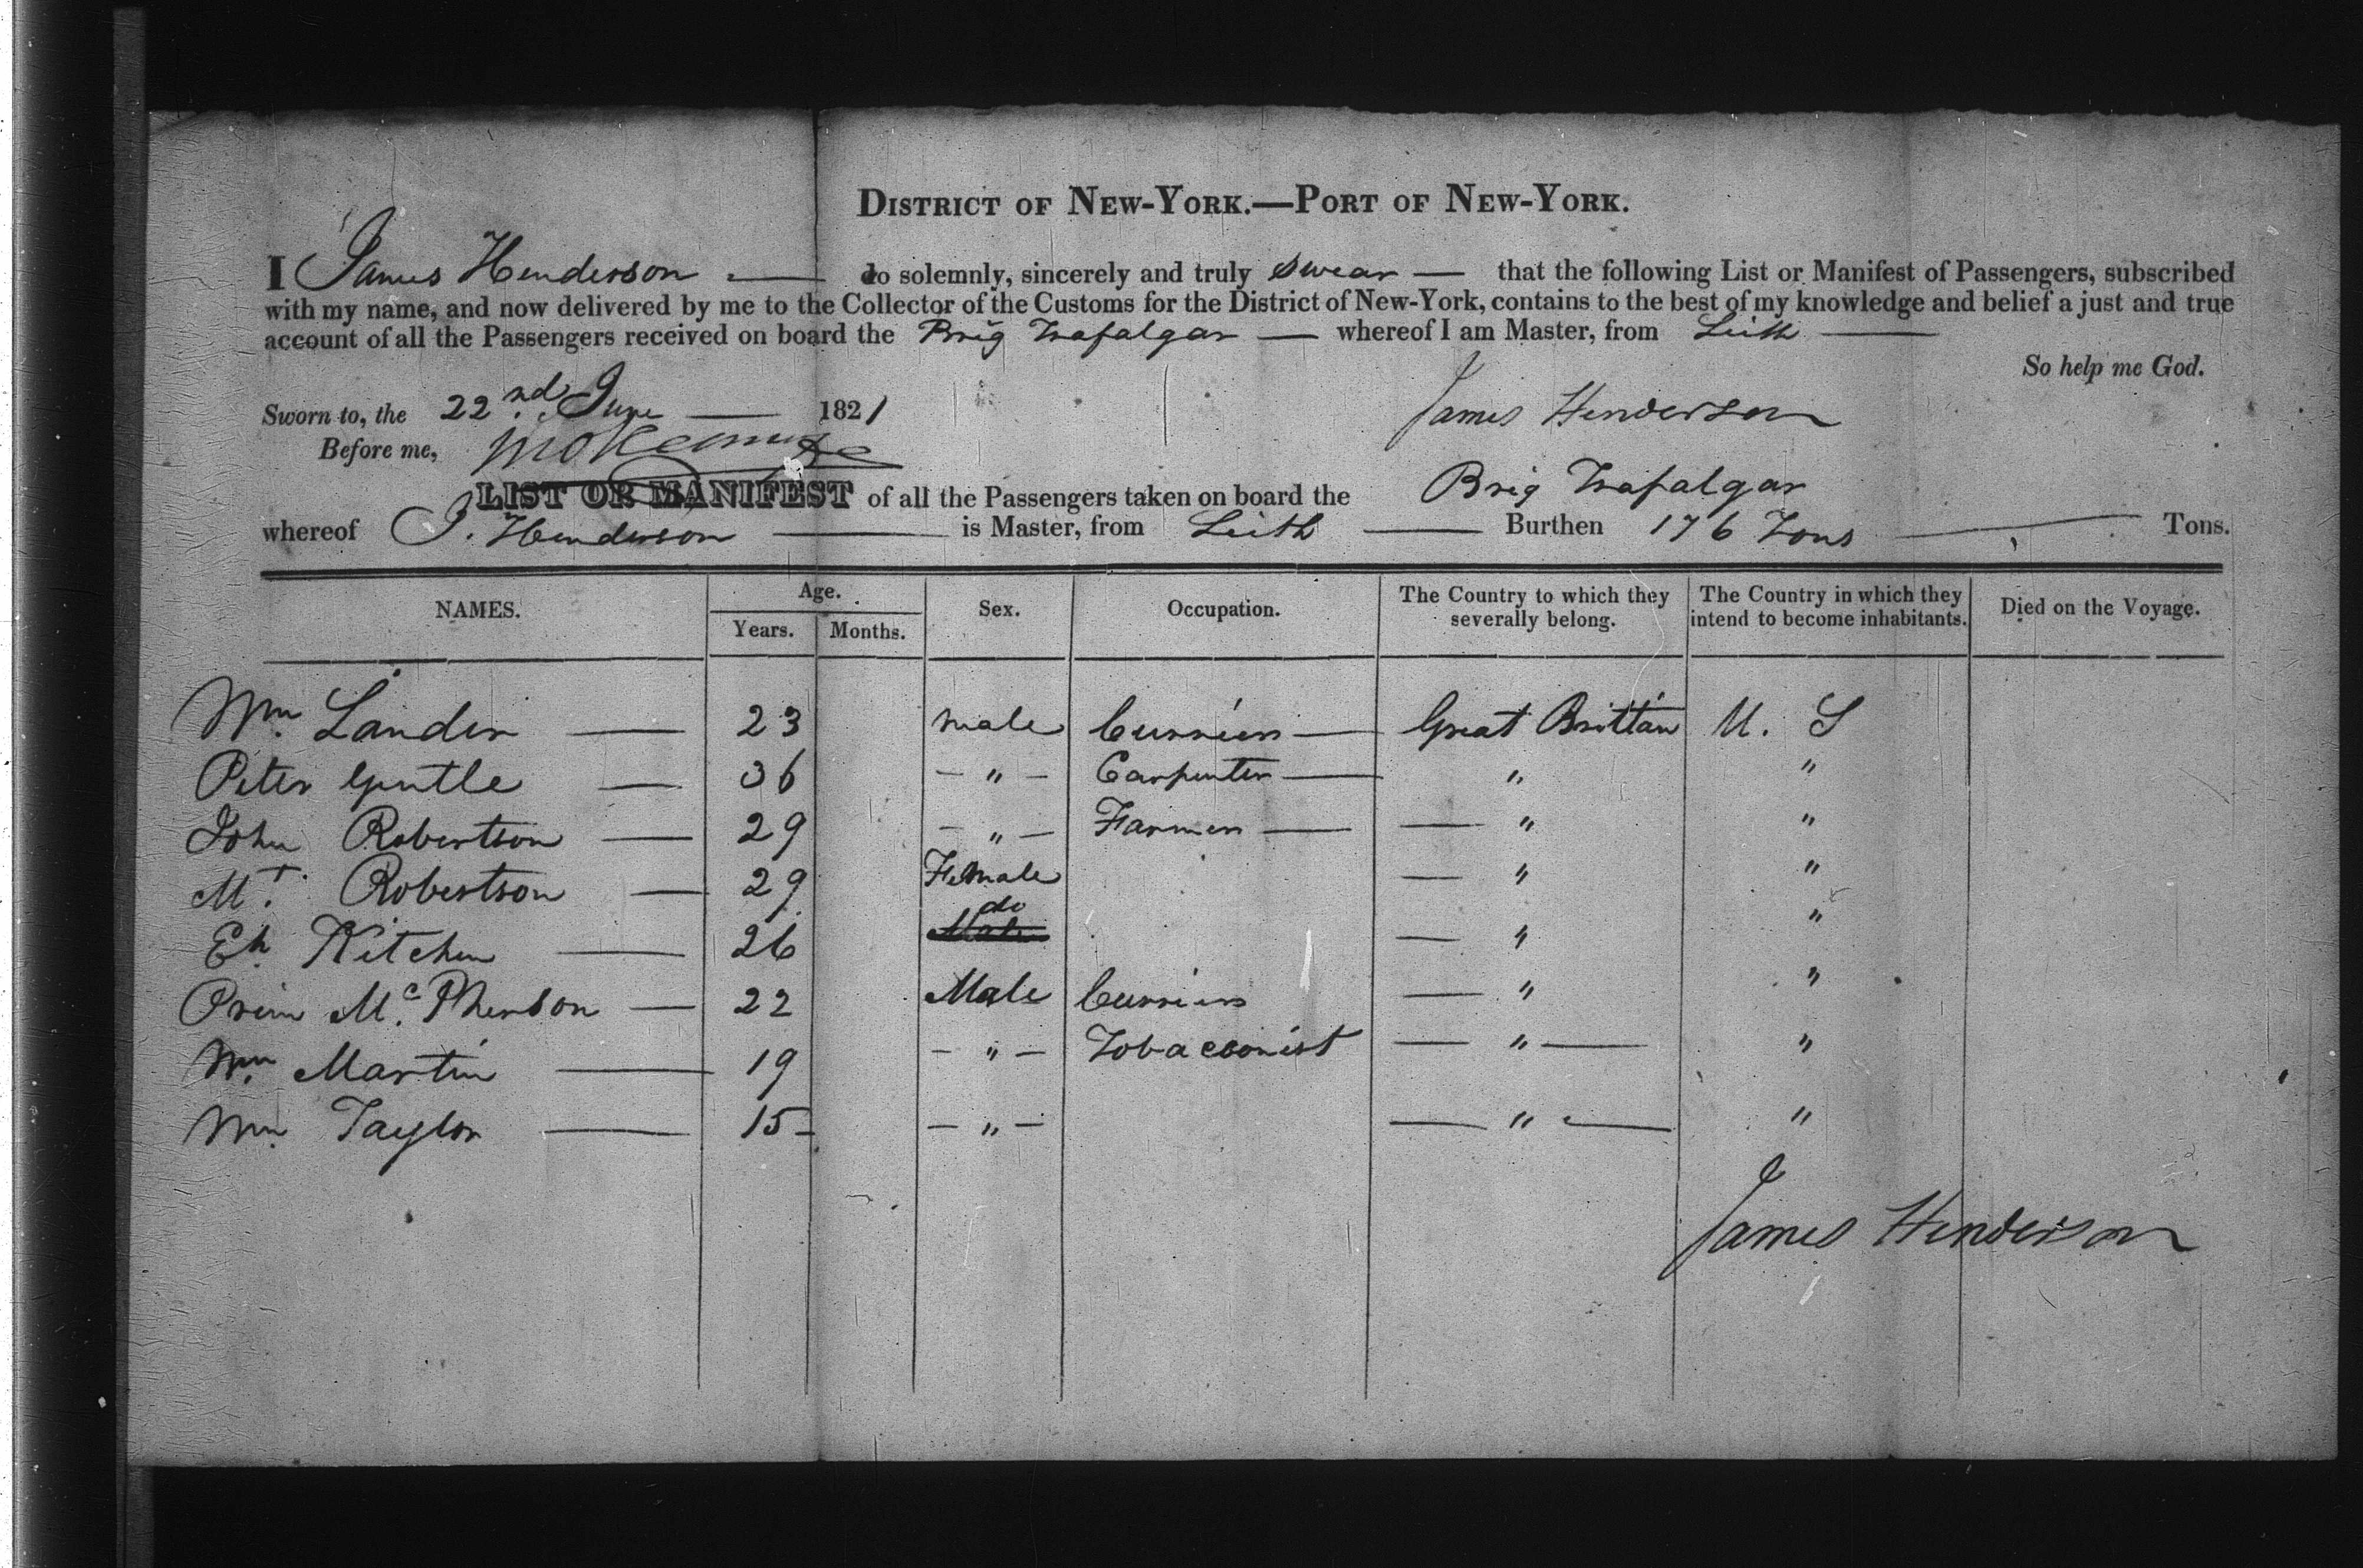 DISTRICT OF NEW-YORK.—PORT OF NEW-YORK.
I James Henderson — do solemnly, sincerely and truly swear — that the following List or Manifest of Passengers, subscribed
with my name, and now delivered by me to the Collector of the Customs for the District of New-York, contains to the best of my knowledge and belief a just and true
account of all the Passengers received on board the Brig Trafalgar — whereof I am Master, from Leith —
So help me God.
Sworn to, the 22nd. June — 1821 James Henderson
Before me,
LIST OR MANIFEST of all the Passengers taken on board the Brig Trafalgar
whereof J. Henderson — is Master, from Leith — Burthen 176 Tons — Tons.
NAMES. Age. Years. Months. Sex. Occupation. The Country to which they severally belong. The Country in which they intend to become inhabitants. Died on the Voyage.
Wm. Lander — 23 male Currier — Great Brittan U. S
Peter Gentle — 36 — " — Carpenter — " "
John Robertson — 29 — " — Farmer — — " "
Mt. Robertson — 29 Female — " "
Eh. Kitchen — 26 Male do — " "
McPherson — 22 Male Currier — " "
Wm. Martin — 19 — " — Tobacconist — " — "
Wm. Taylor — 15 — " — — " — "
James Henderson